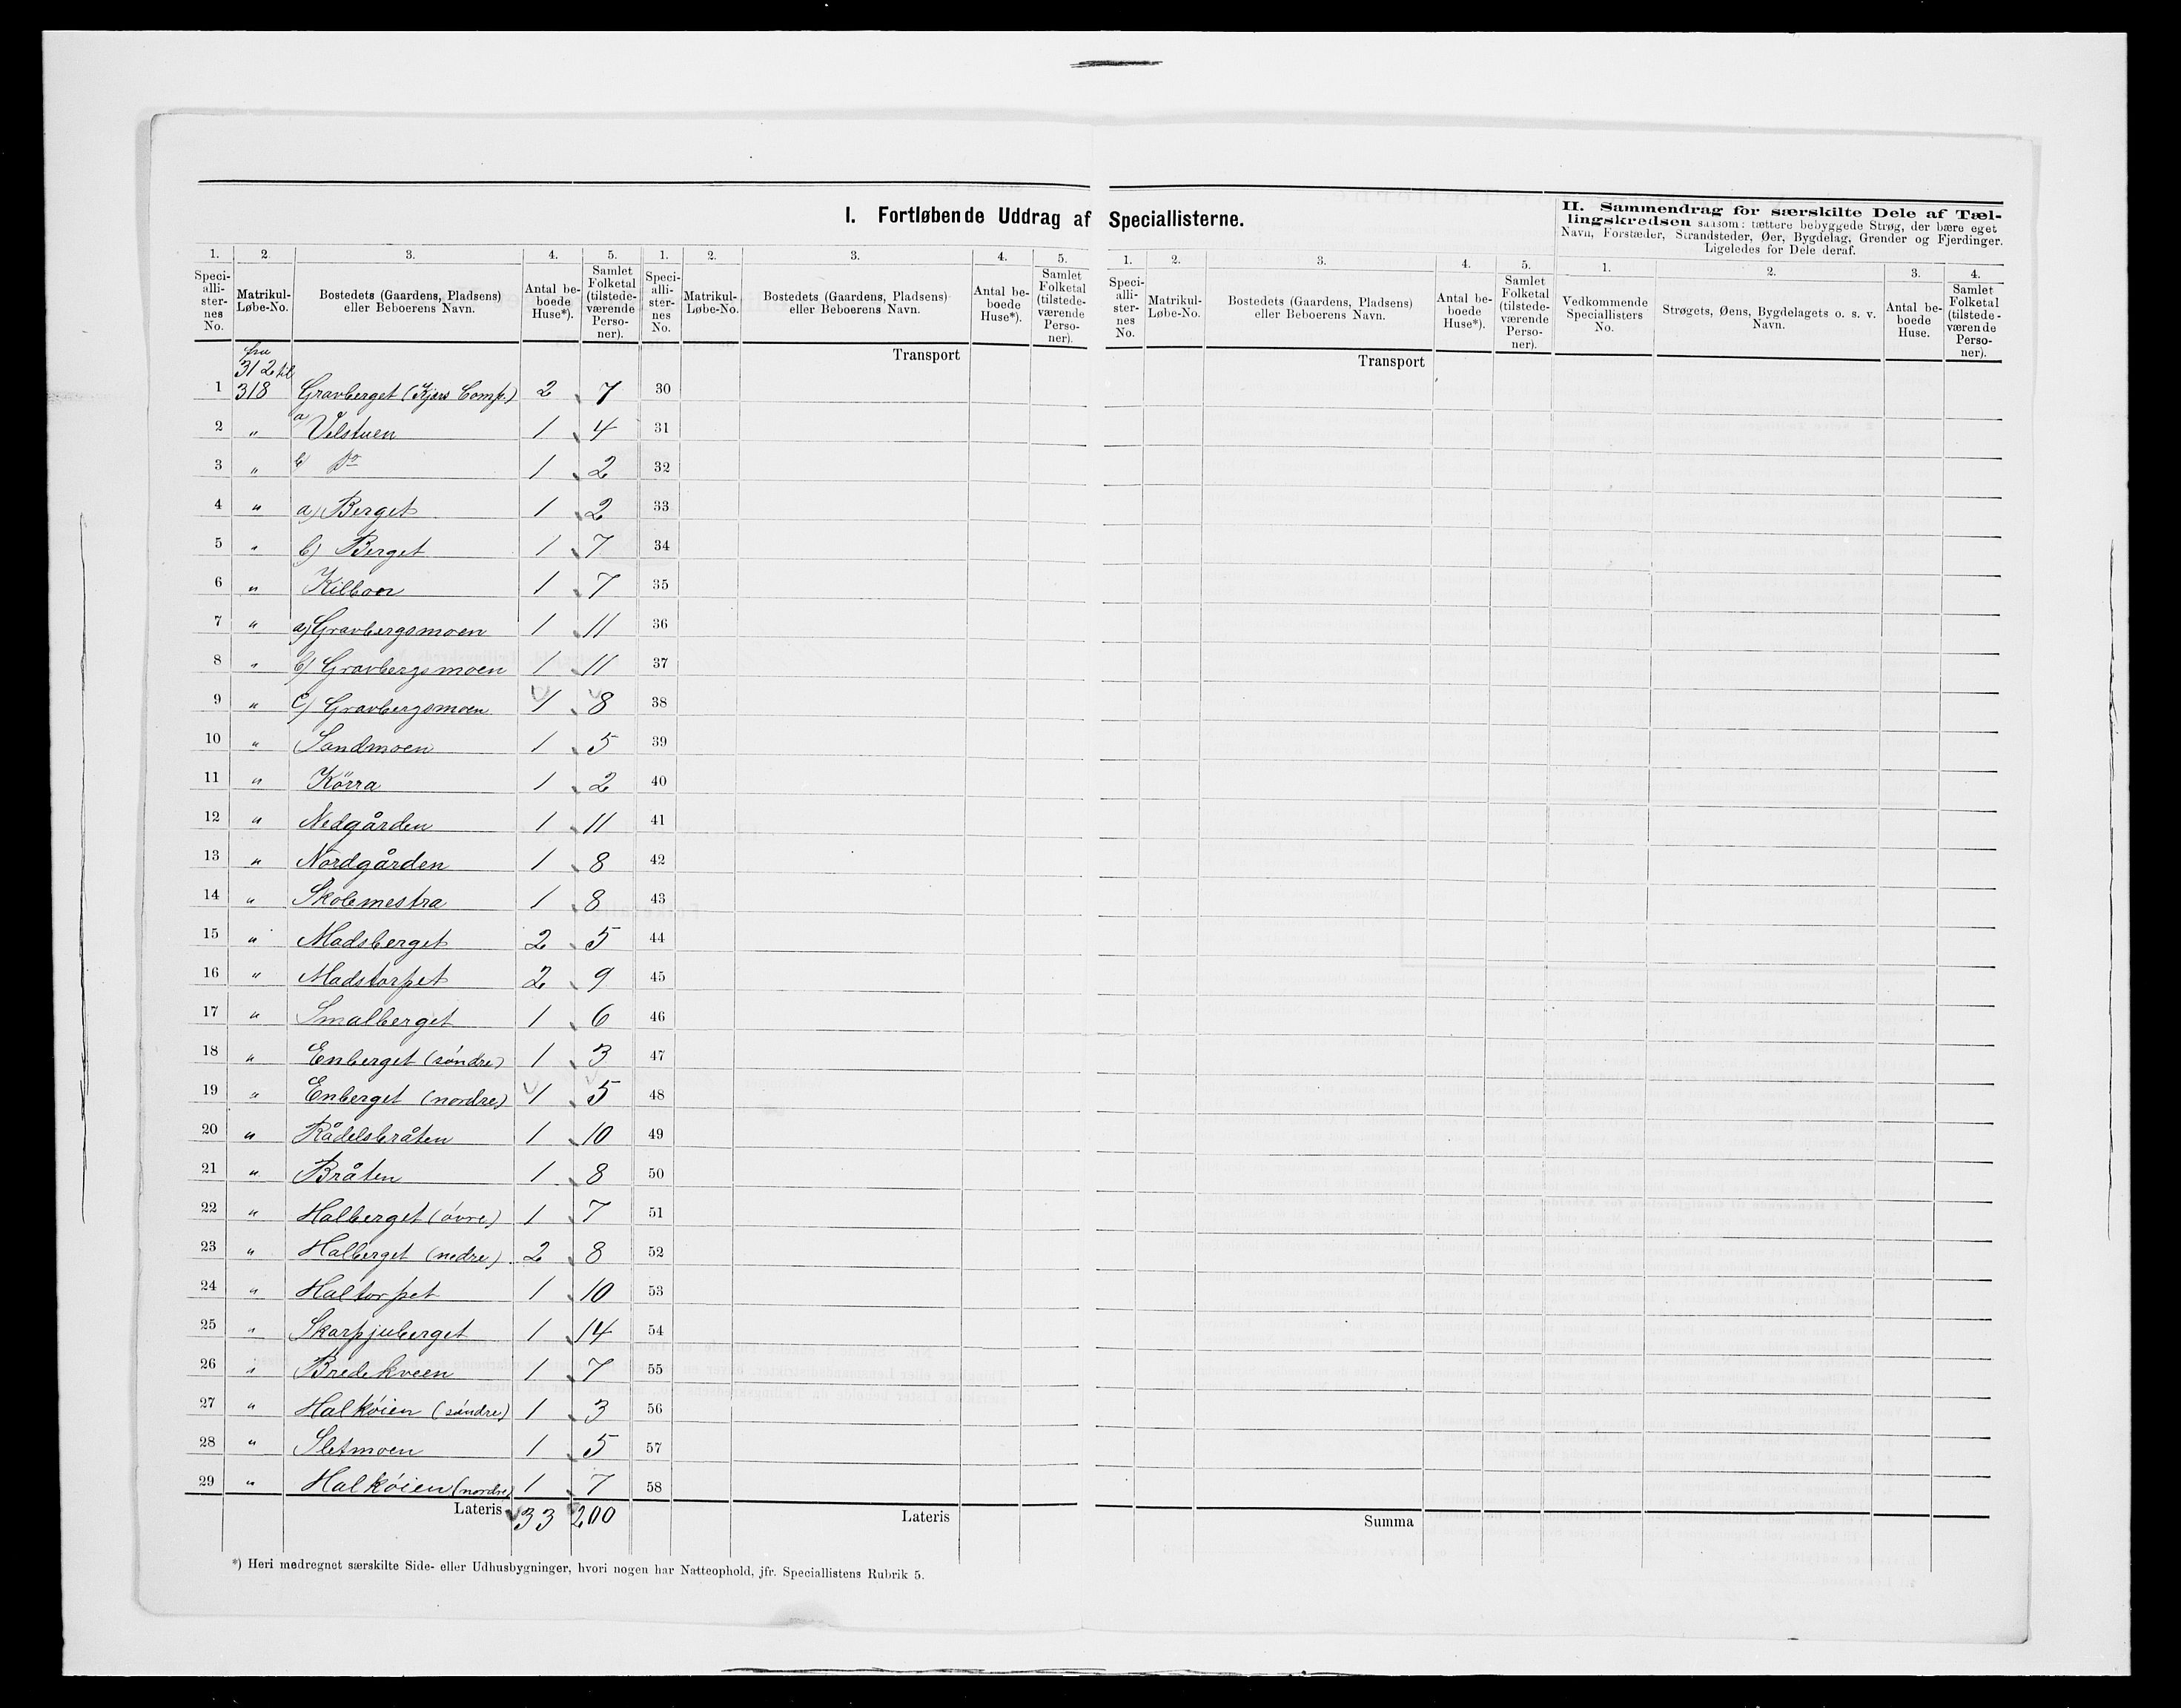 I. Fortløbende Uddrag af Speciallisterne.
II. Sammendrag for særskilte Dele af Tæl-
lingskredsen saasom: tættere bebyggede Strøg, der bære eget
Navn, Forstæder, Strandsteder, Øer, Bygdelag, Grender og Fjerdinger.
Ligeledes for Dele deraf.
1. 2. 3. 4. 5. 1. 2. 3. 4. 5. 1. 2. 3. 4. 5. 1. 2. 3. 4.
Speci-
alli-
ster-
nes
No.
Matrikul-
Løbe-No.
Bostedets (Gaardens, Pladsens)
eller Beboerens Navn.
Antal be-
boede
Huse*).
Samlet
Folketal
(tilstede-
værende
Perso-
ner).
Speci-
alli-
ster-
nes
No.
Matrikul-
Løbe-No.
Bostedets (Gaardens, Pladsens)
eller Beboerens Navn.
Antal be-
boede
Huse*).
Samlet
Folketal
(tilstede-
værende
Perso-
ner).
Speci-
alli-
ster-
nes
No.
Matrikul-
Løbe-No.
Bostedets (Gaardens, Pladsens)
eller Beboerens Navn.
Antal be-
boede
Huse*).
Samlet
Folketal
(tilstede-
værende
Perso-
ner).
Vedkommende
Speciallisters
No.
Strøgets, Øens, Bygdelagets o. s. v.
Navn.
Antal be-
boede
Huse.
Samlet
Folketal
(tilstede-
værende
Perso-
ner).
Transport
Transport
fra
312 til
1 318 Gravberget (Kjærs Comp.) 2 7 30
2 " a Velstuen 1 4 31
3 " b) Do 1 2 32
4 " a) Berget 1 2 33
5 " b) Berget 1 7 34
6 " 1 7 35
7 " a) Gravbergsmoen 1 11 36
8 " b) Gravbergsmoen 1 11 37
9 " c) Gravbergsmoen 1 8 38
10 " Sandmoen 1 5 39
11 " Körra 1 2 40
12 " Nedgården 1 11 41
13 " Nordgården 1 8 42
14 " Skolemestra 1 8 43
15 " Madsberget 2 5 44
16 " Madstorpet 2 9 45
17 " Smalberget 1 6 46
18 " Enberget (søndre) 1 3 47
19 " Enberget (nordre) 1 5 48
20 " Rådelsbråten 1 10 49
21 " Bråten 1 8 50
22 " Halberget (øvre) 1 7 51
23 " Halberget (nedre) 2 8 52
24 " Haltorpet 1 10 53
25 " Skarpjuberget 1 14 54
26 " Bredekveen 1 7 55
27 " Halkøien (søndre) 1 3 56
28 " Sletmoen 1 5 57
29 " Halkøien (nordre) 1 7 58
Lateris 33 200
Lateris
Summa
*) Heri medregnet særskilte Side- eller Udhusbygninger, hvori nogen har Natteophold, jfr. Speciallistens Rubrik 5.